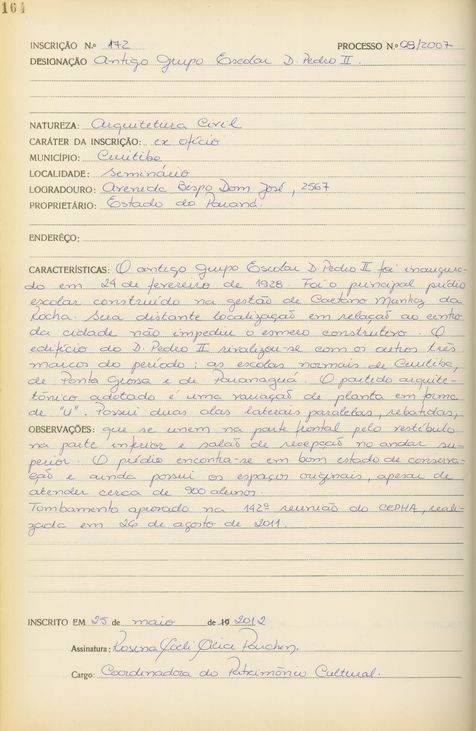 164
INSCRIÇÃO N.º 172 PROCESSO N.º 08/2007
DESIGNAÇÃO Antigo Grupo Escolar D. Pedro II.
NATUREZA: Arquitetura Civil
CARÁTER DA INSCRIÇÃO: ex ofício
MUNICÍPIO: Curitiba
LOCALIDADE: Seminário
LOGRADOURO: Avenida Bispo Dom José, 2567
PROPRIETÁRIO: Estado do Paraná.
ENDERÊÇO:
CARACTERÍSTICAS: O antigo Grupo Escolar D. Pedro II foi inaugura-
do em 24 de fevereiro de 1928. Foi o principal prédio
escolar construído na gestão de Caetano Munhoz da
Rocha. Sua distante localização em relação ao centro
da cidade não impediu o esmero construtivo. O
edifício do D. Pedro II rivalizou-se com os outros três
marcos do período: as escolas normais de Curitiba,
de Ponta Grossa e de Paranaguá. O partido arquite-
tônico adotado é uma variação de planta em forma
de "U". Possui duas alas laterais paralelas, rebatidas,
OBSERVAÇÕES: que se unem na parte frontal pelo vestíbulo
na parte inferior e salão de recepção no andar su-
perior. O prédio encontra-se em bom estado de conserva-
ção e ainda possui os espaços originais, apesar de
atender cerca de 900 alunos.
Tombamento aprovado na 142ª reunião do CEPHA, reali-
zada em 26 de agosto de 2011.
INSCRITO EM 25 de maio de 19 2012
Assinatura: Rosina Parchen
Cargo: Coordenadora do Patrimônio Cultural.